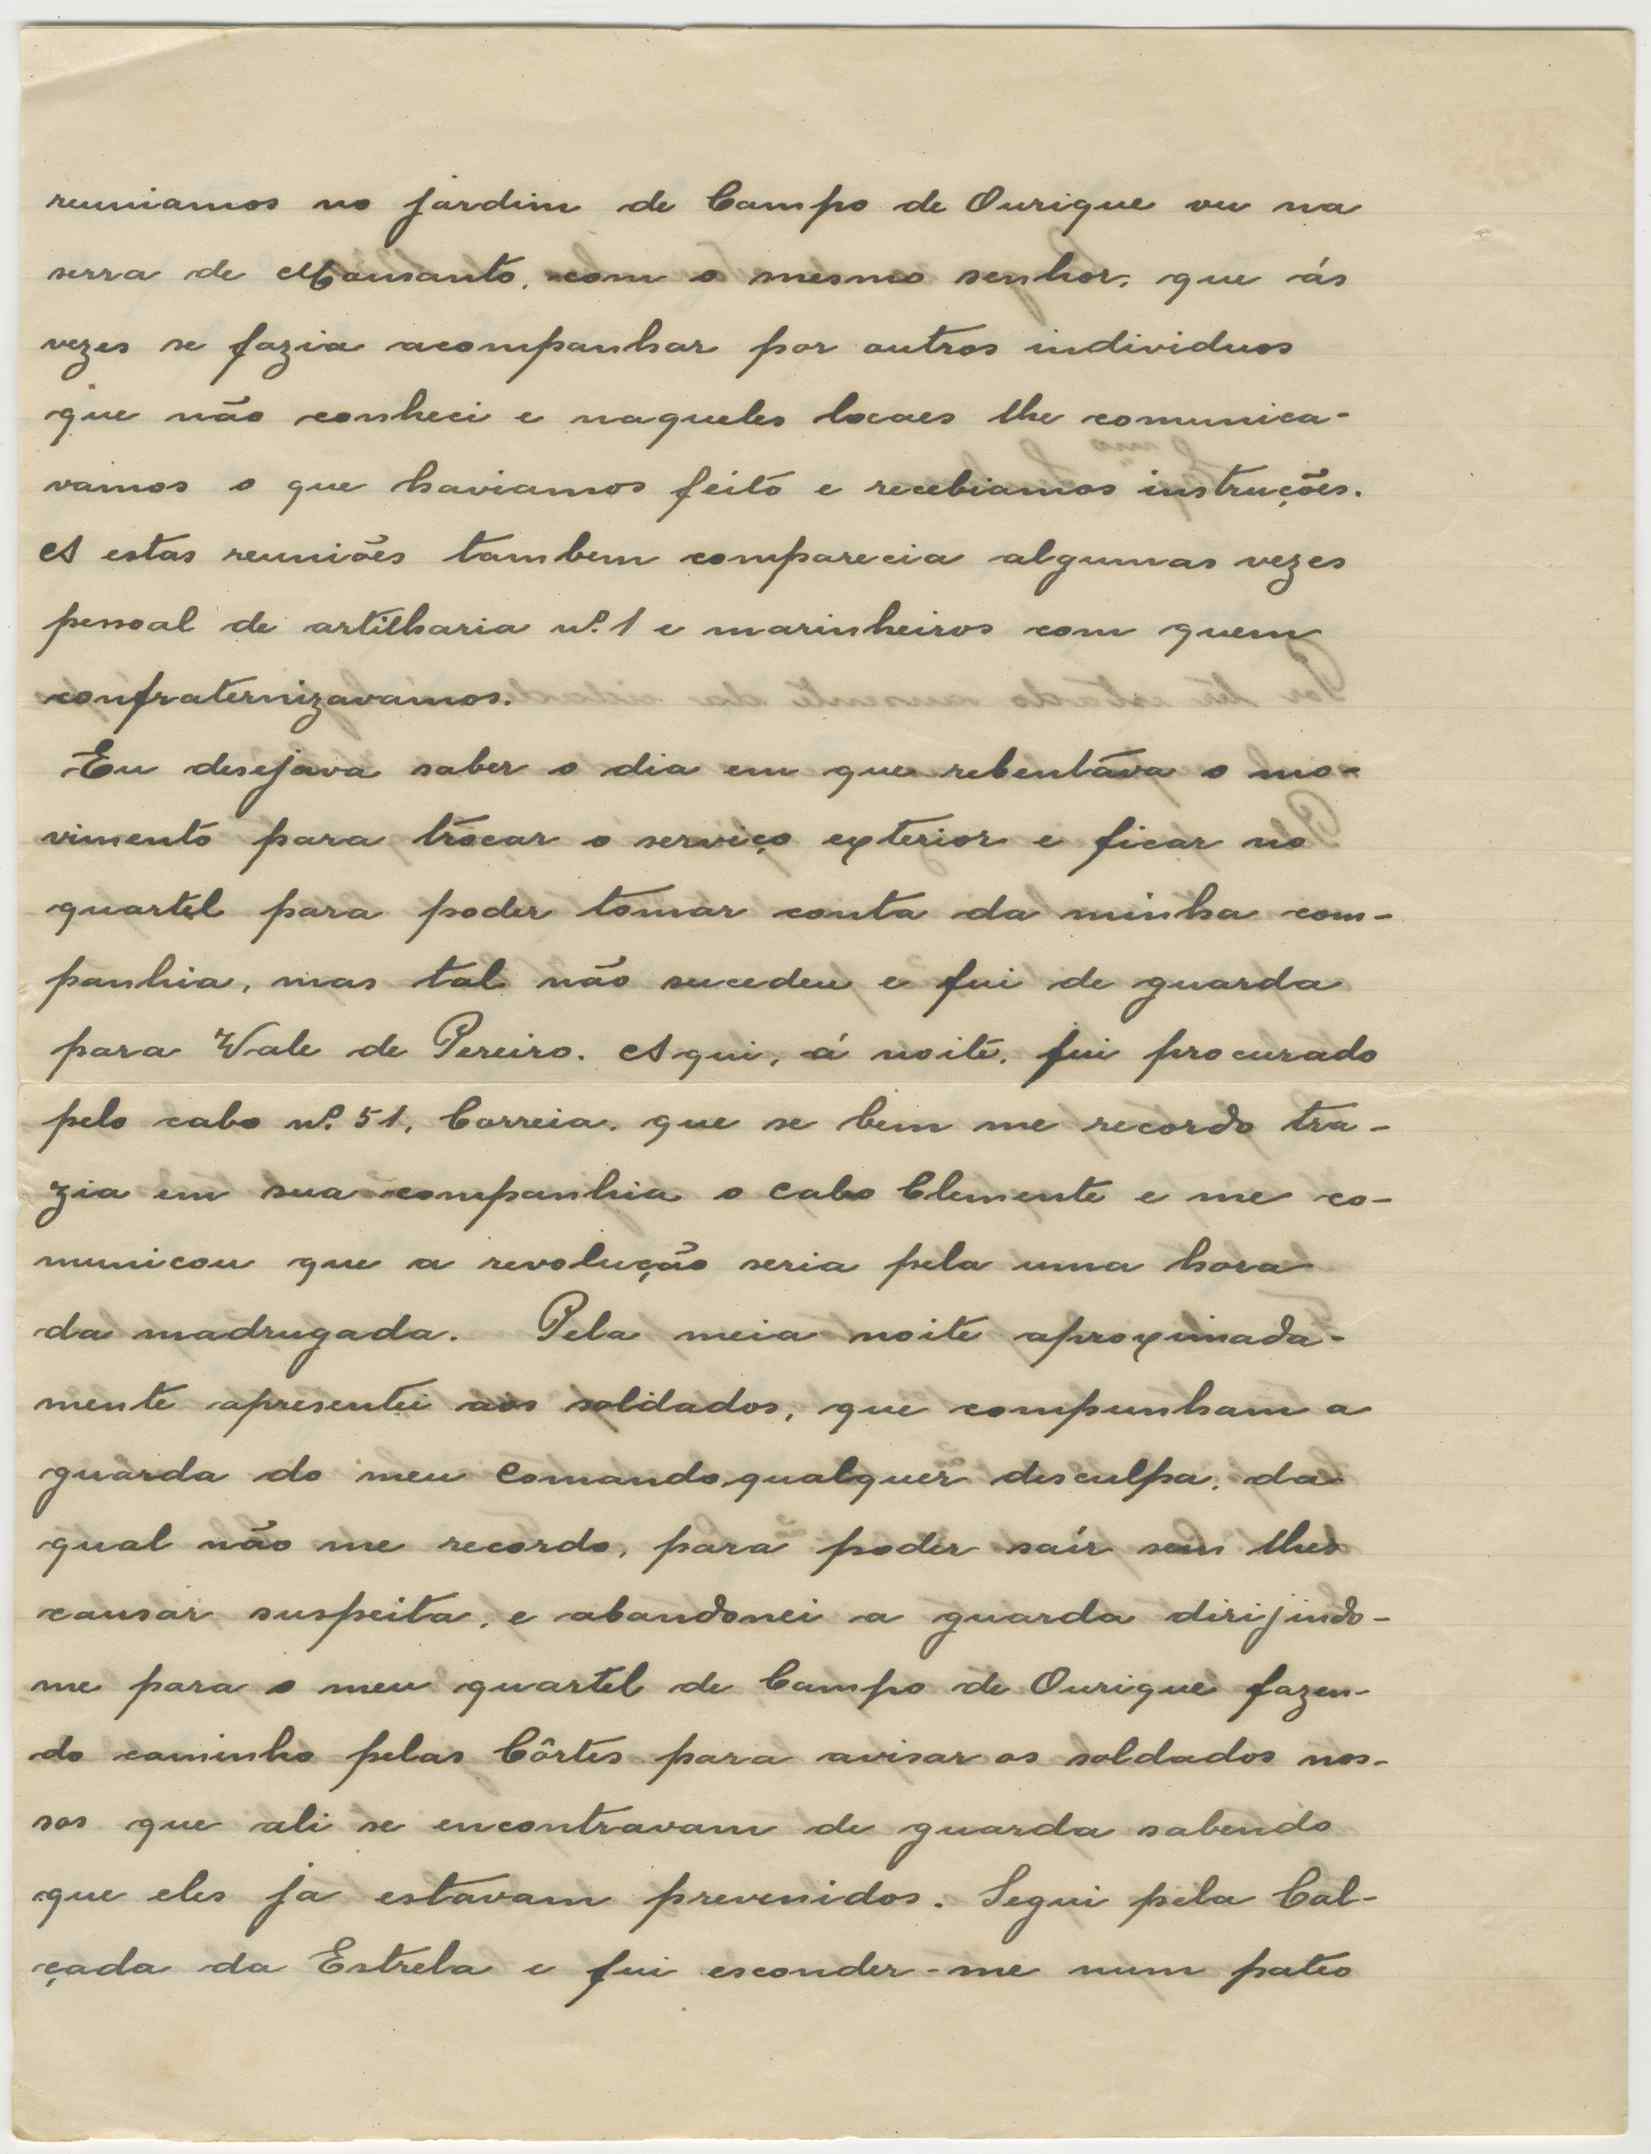 reuniamos no jardim de Campo de Ourique ou na
serra de Monsanto, com o mesmo senhor, que ás
vezes se fazia acompanhar por outros individuos
que não conheci e naqueles locaes lhe comunica-
vamos o que haviamos feito e recebiamos instruções.
A estas reuniões tambem comparecia algumas vezes
pessoal de artilharia nº. 1 e marinheiros com quem
confraternizavamos.
Eu desejava saber o dia em que rebentáva o mo-
vimento para trocar o serviço exterior e ficar no
quartel para poder tomar conta da minha com-
panhia, mas tal não sucedeu e fui de guarda
para Vale de Pereiro. Aqui, á noite, fui procurado
pelo cabo nº. 51, Correia, que se bem me recordo tra-
zia em sua companhia o cabo Clemente e me co-
municou que a revolução seria pela uma hora
da madrugada. Pela meia noite aproximada-
mente apresentei aos soldados, que compunham a
guarda do meu comando, qualquer desculpa, da
qual não me recordo, para poder saír sem lhes
causar suspeita, e abandonei a guarda dirijindo-
me para o meu quartel de Campo de Ourique fazen-
do caminho pelas Côrtes para avisar os soldados nos-
sos que ali se encontravam de guarda sabendo
que eles ja estavam prevenidos. Segui pela Cal-
çada da Estrela e fui esconder-me num pateo